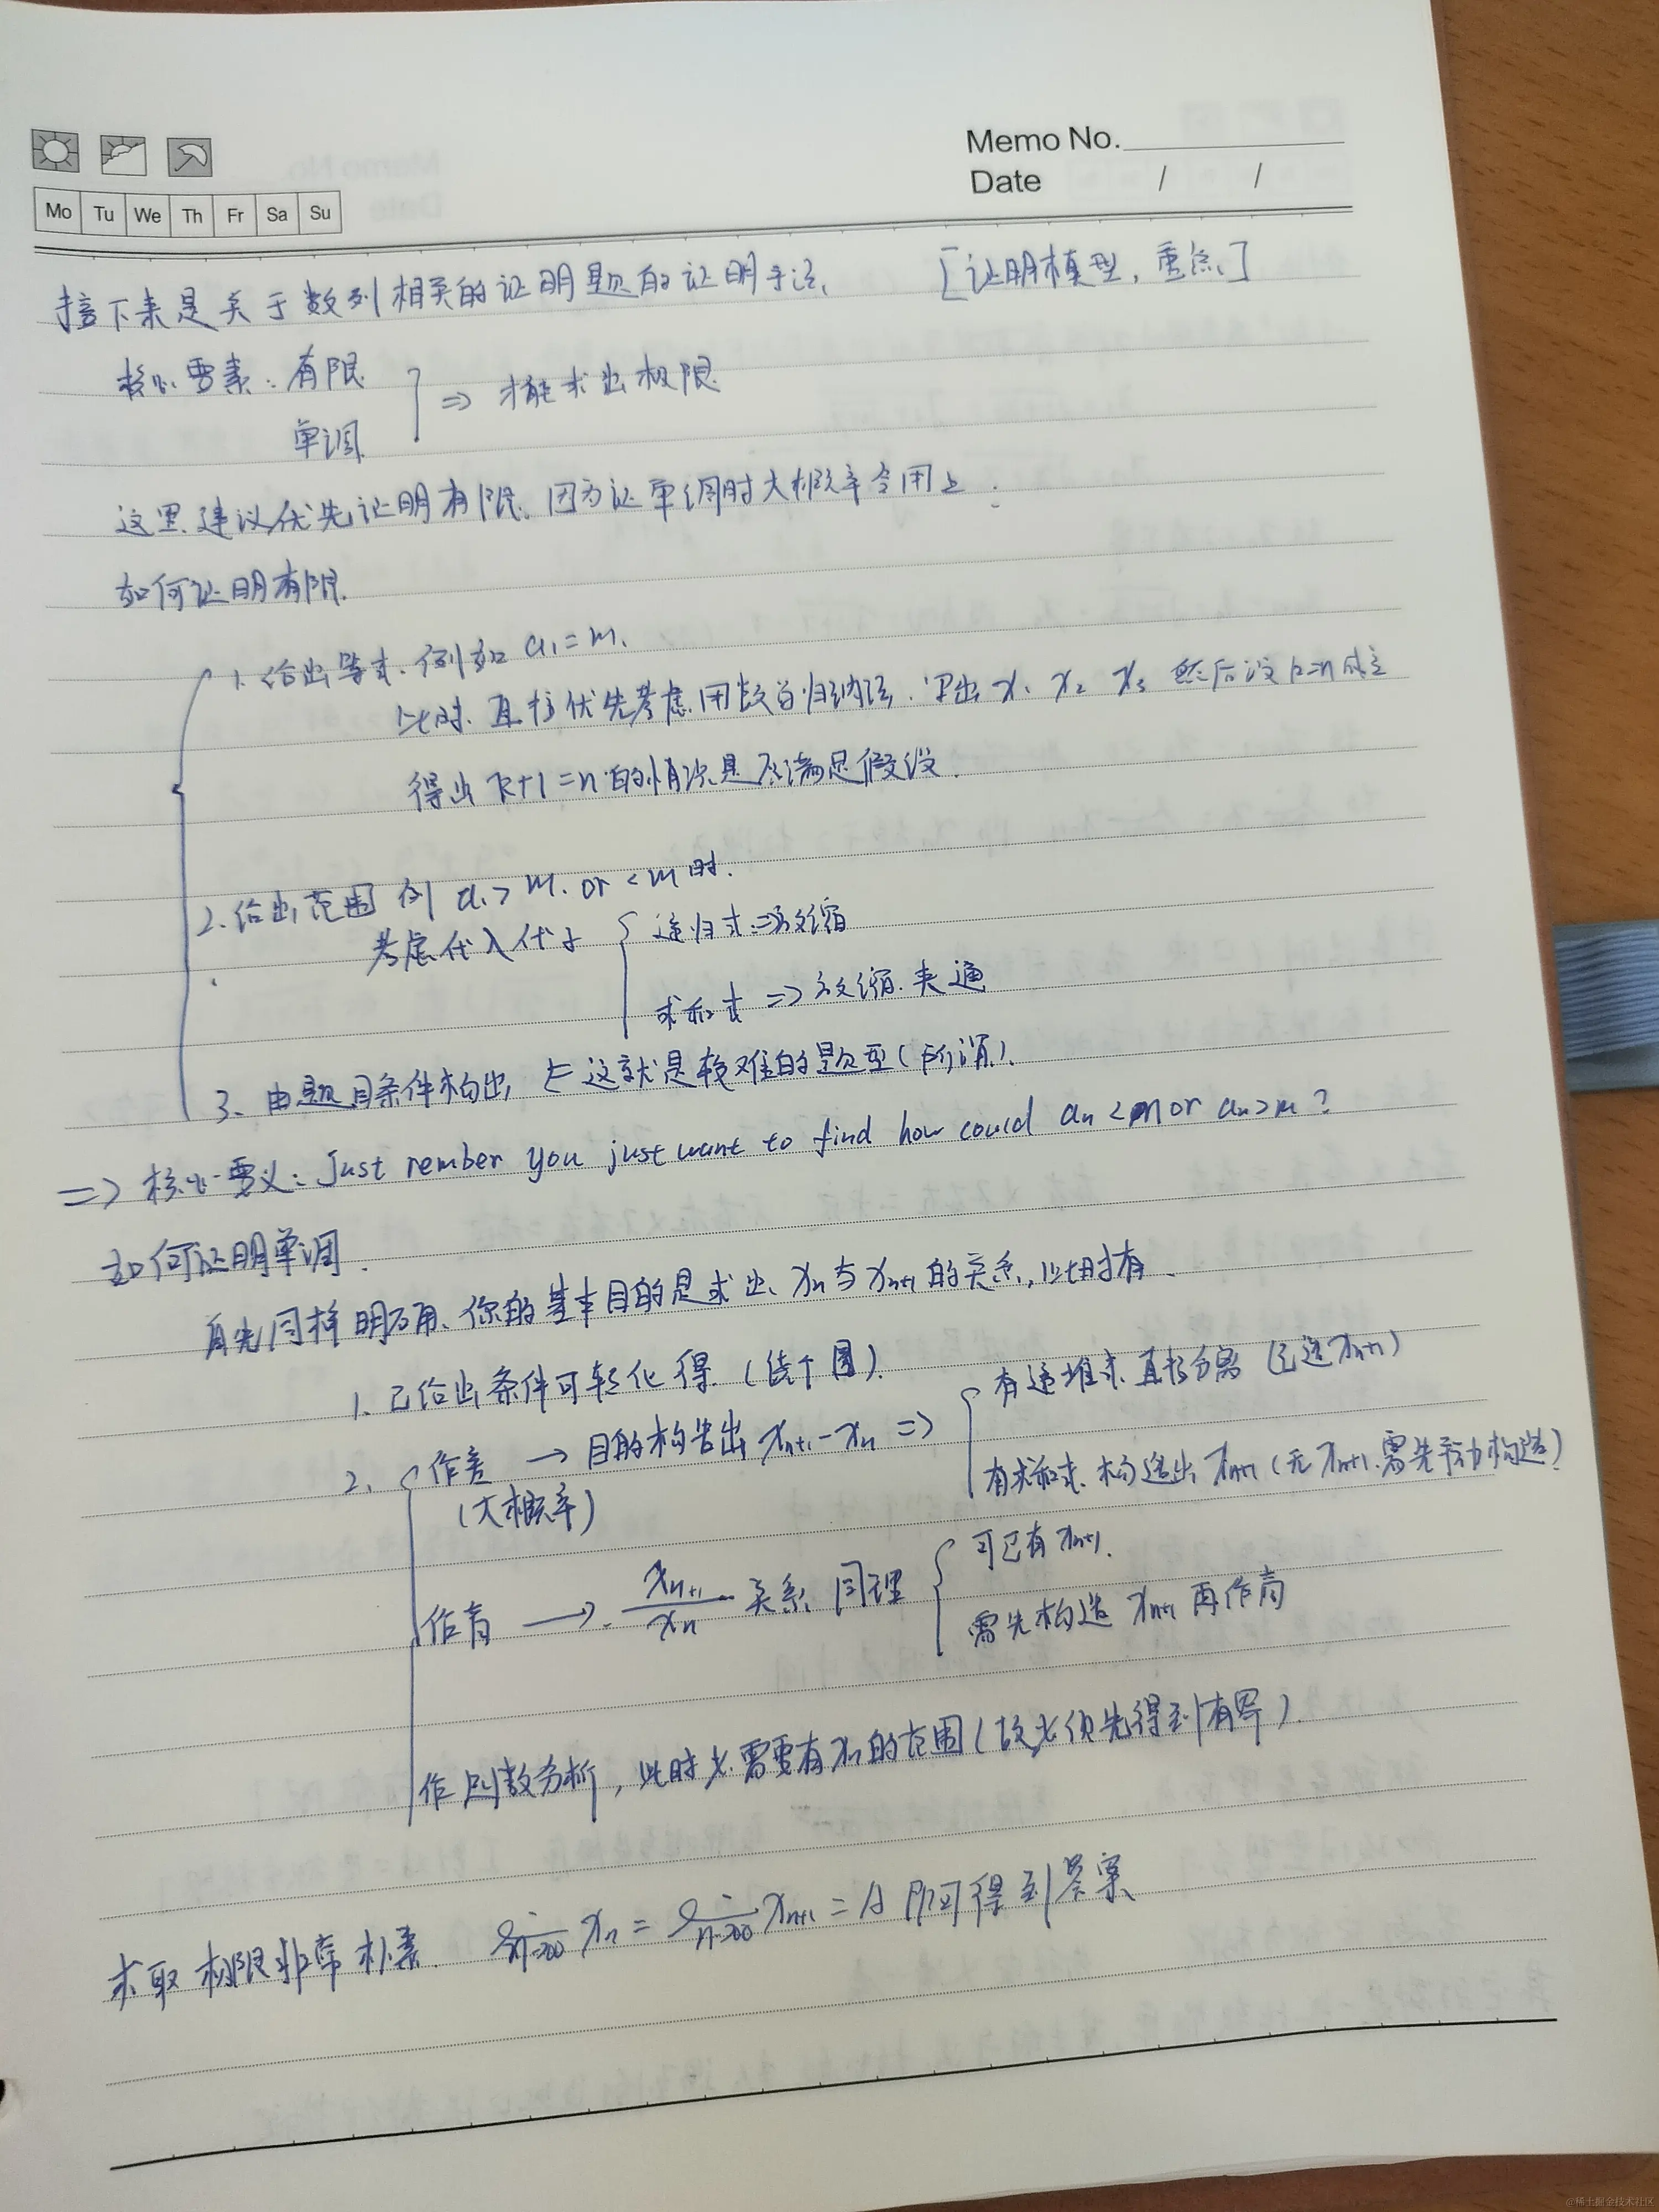 Memo No.
Date / /
Mo Tu We Th Fr Sa Su
接下来是关于数列相关的证明题的证明手法. [证明模型,重点]
核心要素:有限
单调
⇒ 才能求出极限
这里建议优先证明有限,因为证单调时大概率会用上.
如何证明有限.
1. 给出等式.例如 a₁=m.
此时.直接优先考虑用数学归纳法. 写出 x₁ x₂ x₃ 然后设k=n成立
得出 k+1=n 的情况是否满足假设.
2. 给出范围 例 a₁>m. or <m时.
考虑代入代于
递归式⇒放缩
求和式 ⇒ 放缩.夹逼
3. 由题目条件构出 ← 这就是较难的题型(所谓).
⇒ 核心要义: Just rember you just want to find how could aₙ<m or aₙ>m?
如何证明单调.
首先同样明确.你的基本目的是求出 xₙ与xₙ₊₁的关系,此时有.
1. 已给出条件可转化得.(续下图).
2. 作差 → 目的构告出 xₙ₊₁-xₙ ⇒
(大概率)
有递推式.直接分离 (已送xₙ₊₁)
有求和式.构造出 xₙ₊₁ (无xₙ₊₁.需先手动构造)
作商 → xₙ₊₁/xₙ 关系 同理
可已有 xₙ₊₁.
需先构造 xₙ₊₁ 再作商
作函数分析,此时尤需要有xₙ的范围(故尤须先得到有界).
求取极限非常朴素. lim n→∞ xₙ = lim n→∞ xₙ₊₁ = A 即可得到答案
@稀土掘金技术社区